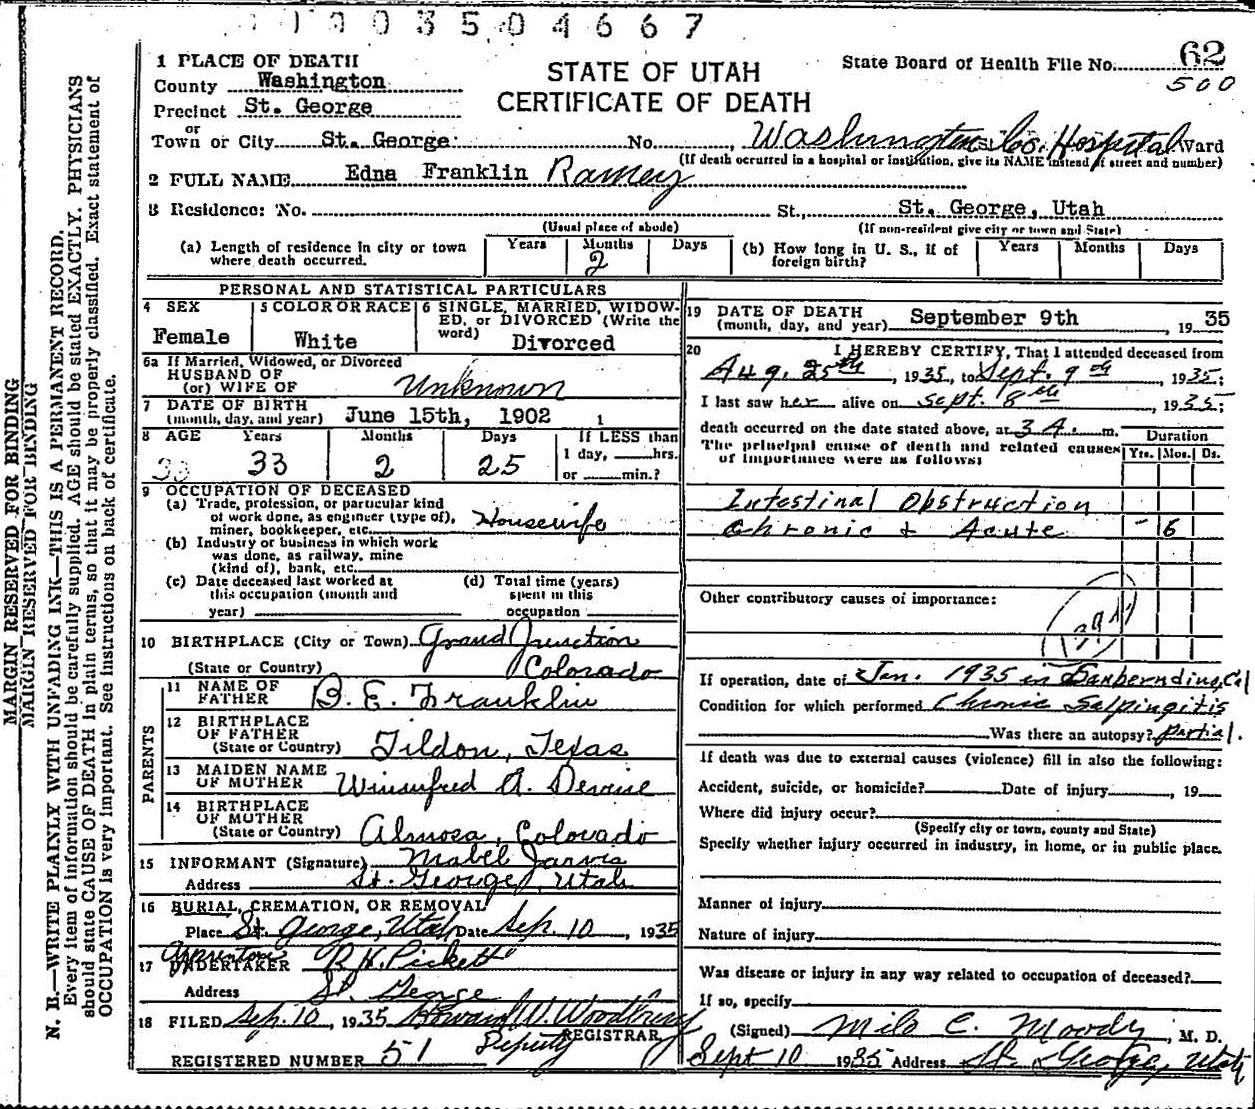 003504667
62
500
State Board of Health File No.
STATE OF UTAH
CERTIFICATE OF DEATH
1 PLACE OF DEATH
County Washington
Precinct St. George
or
Town or City St. George No. , Washington Co. Hospital Ward
(If death occurred in a hospital or institution, give its NAME instead of street and number)
2 FULL NAME Edna Franklin Ramey
3 Residence: No. St., St. George, Utah
(Usual place of abode) (If non-resident give city or town and State)
(a) Length of residence in city or town where death occurred. Years Months 2 Days
(b) How long in U. S., if of foreign birth? Years Months Days
PERSONAL AND STATISTICAL PARTICULARS
4 SEX Female
5 COLOR OR RACE White
6 SINGLE, MARRIED, WIDOWED, or DIVORCED (Write the word) Divorced
6a If Married, Widowed, or Divorced
HUSBAND OF
(or) WIFE OF Unknown
7 DATE OF BIRTH
(month, day, and year) June 15th, 1902 1
8 AGE Years Months Days If LESS than
33 33 2 25 1 day, hrs.
or min.?
9 OCCUPATION OF DECEASED
(a) Trade, profession, or particular kind
of work done, as engineer (type of),
miner, bookkeeper, etc. Housewife
(b) Industry or business in which work
was done, as railway, mine
(kind of), bank, etc.
(c) Date deceased last worked at
this occupation (month and
year)
(d) Total time (years)
spent in this
occupation
10 BIRTHPLACE (City or Town) Grand Junction
(State or Country) Colorado
PARENTS
11 NAME OF
FATHER B. E. Franklin
12 BIRTHPLACE
OF FATHER
(State or Country) Tildon, Texas
13 MAIDEN NAME
OF MOTHER Winnifred A. Devine
14 BIRTHPLACE
OF MOTHER
(State or Country) Almosa, Colorado
15 INFORMANT (Signature) Mabel Jarvis
Address St. George, Utah
16 BURIAL, CREMATION, OR REMOVAL
Place St. George, Utah Date Sep. 10, 1935
17 UNDERTAKER R. H. Pickett
Address St. George
18 FILED Sep. 10, 1935 Howard W. Woodbury
Deputy REGISTRAR
REGISTERED NUMBER 51
19 DATE OF DEATH
(month, day, and year) September 9th, 1935
20 I HEREBY CERTIFY, That I attended deceased from
Aug. 25th, 1935, to Sept. 9th, 1935;
I last saw her alive on Sept. 8th, 1935;
death occurred on the date stated above, at 3 A. m.
The principal cause of death and related causes
of importance were as follows:
Duration
Yrs. Mos. Ds.
Intestinal Obstruction
Chronic & Acute - 6
Other contributory causes of importance:
If operation, date of Jan. 1935 in Sanberndino, Cal
Condition for which performed Chronic Salpingitis
Was there an autopsy? Partial.
If death was due to external causes (violence) fill in also the following:
Accident, suicide, or homicide? Date of injury , 19
Where did injury occur?
(Specify city or town, county and State)
Specify whether injury occurred in industry, in home, or in public place.
Manner of injury
Nature of injury
Was disease or injury in any way related to occupation of deceased?
If so, specify
(Signed) Milo C. Moody, M. D.
Sept 10 1935 Address St. George, Utah
MARGIN RESERVED FOR BINDING
MARGIN RESERVED FOR BINDING
N. B.—WRITE PLAINLY WITH UNFADING INK—THIS IS A PERMANENT RECORD.
Every item of information should be carefully supplied. AGE should be stated EXACTLY. PHYSICIANS
should state CAUSE OF DEATH in plain terms, so that it may be properly classified. Exact statement of
OCCUPATION is very important. See instructions on back of certificate.